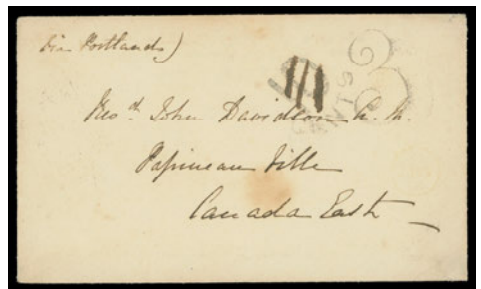 via Portland)
Revd. John Davidson A. M.
Papineau Ville
Canada East
3